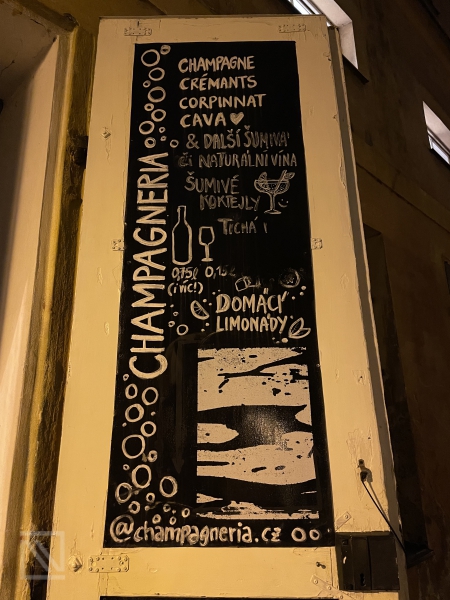 CHAMPAGNERIA
CHAMPAGNE
CRÉMANTS
CORPINNAT
CAVA
& DALŠÍ ŠUMIVÁ
ČI NATURÁLNÍ VÍNA
ŠUMIVÉ
KOKTEJLY
TICHÁ I
0,75l 0,15l
(i víc!)
DOMÁCÍ
LIMONÁDY
@champagneria.cz